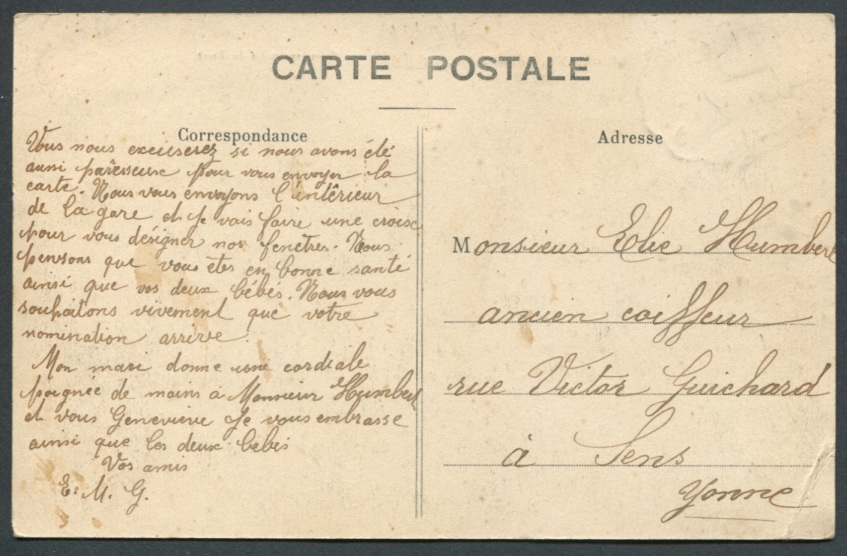 CARTE POSTALE
Correspondance
Vous nous excuserez si nous avons été
aussi paresseuse pour vous envoyer la
carte. Nous vous envoyons l'intérieur
de la gare et je vais faire une croix
pour vous désigner nos fenêtres. Nous
pensons que vous êtes en bonne santé
ainsi que vos deux bébés. Nous vous
souhaitons vivement que votre
nomination arrive.
Mon mari donne une cordiale
poignée de mains à Monsieur Humbert
et vous Geneviève je vous embrasse
ainsi que les deux bébés
Vos amis
E. M. G.
Adresse
Monsieur Elie Humbert
ancien coiffeur
rue Victor Guichard
à Sens
Yonne